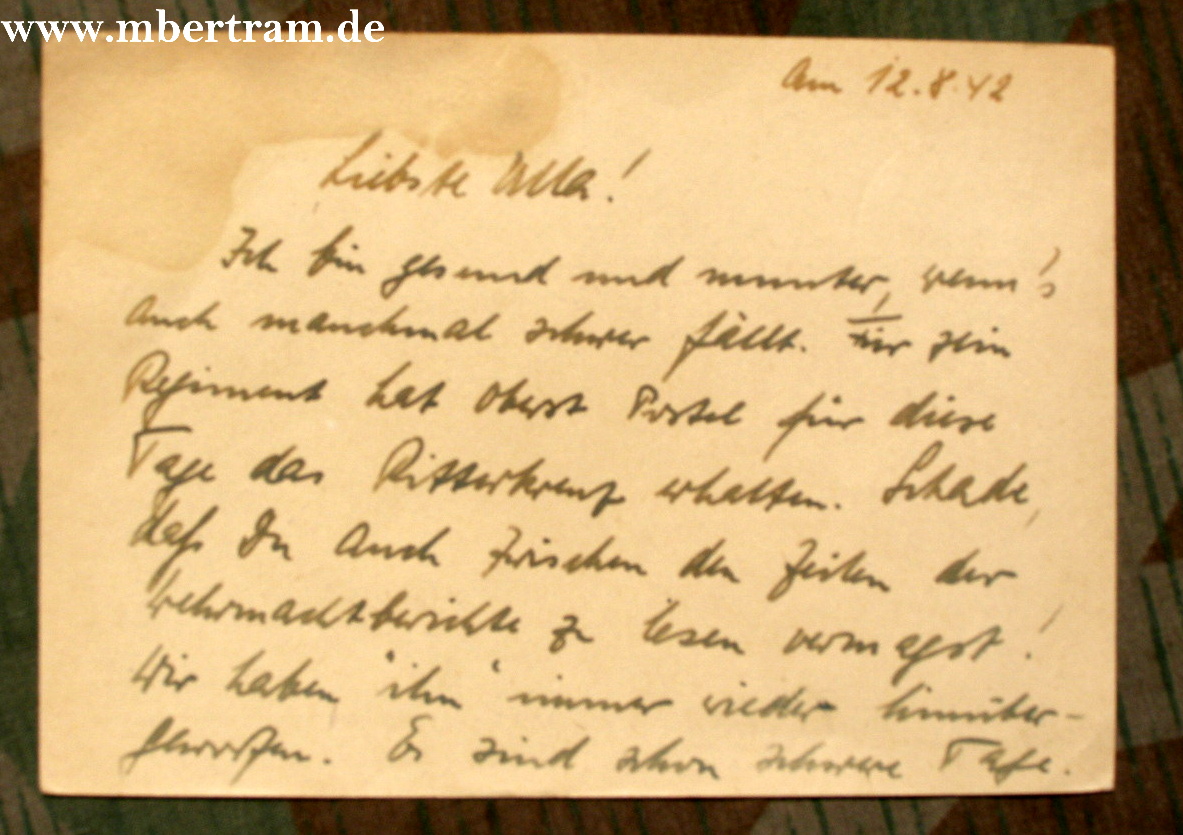 www.mbertram.de
Am 12.8.42
Liebste Ulla!
Ich bin gesund und munter, wenn's
auch manchmal schwer fällt. Für sein
Regiment hat Oberst Postel für diese
Tage das Ritterkreuz erhalten. Schade,
daß Du auch zwischen den Zeilen der
Wehrmachtberichte zu lesen vermagst!
Wir haben "ihn" immer wieder hinüber-
geworfen. Es sind schon schwere Tage.